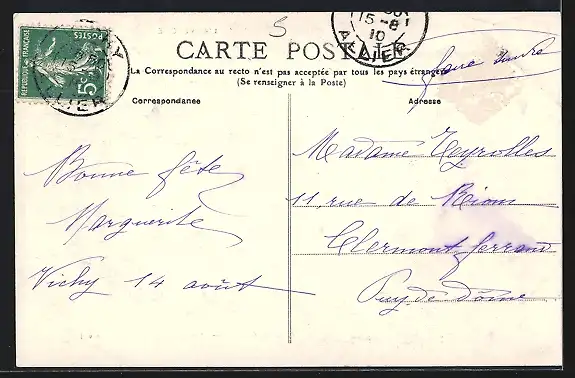 5
CARTE POSTALE
La Correspondance au recto n'est pas acceptée par tous les pays étrangers
(Se renseigner à la Poste)
faire suivre
RÉPUBLIQUE FRANÇAISE
POSTES
5c
ALLIER
15-8
10
ALLIER
Correspondance
Adresse
Bonne fête
Marguerite
Vichy 14 août
Madame Teyrolles
11, rue de Riom
Clermont ferrand
Puy-de-dôme